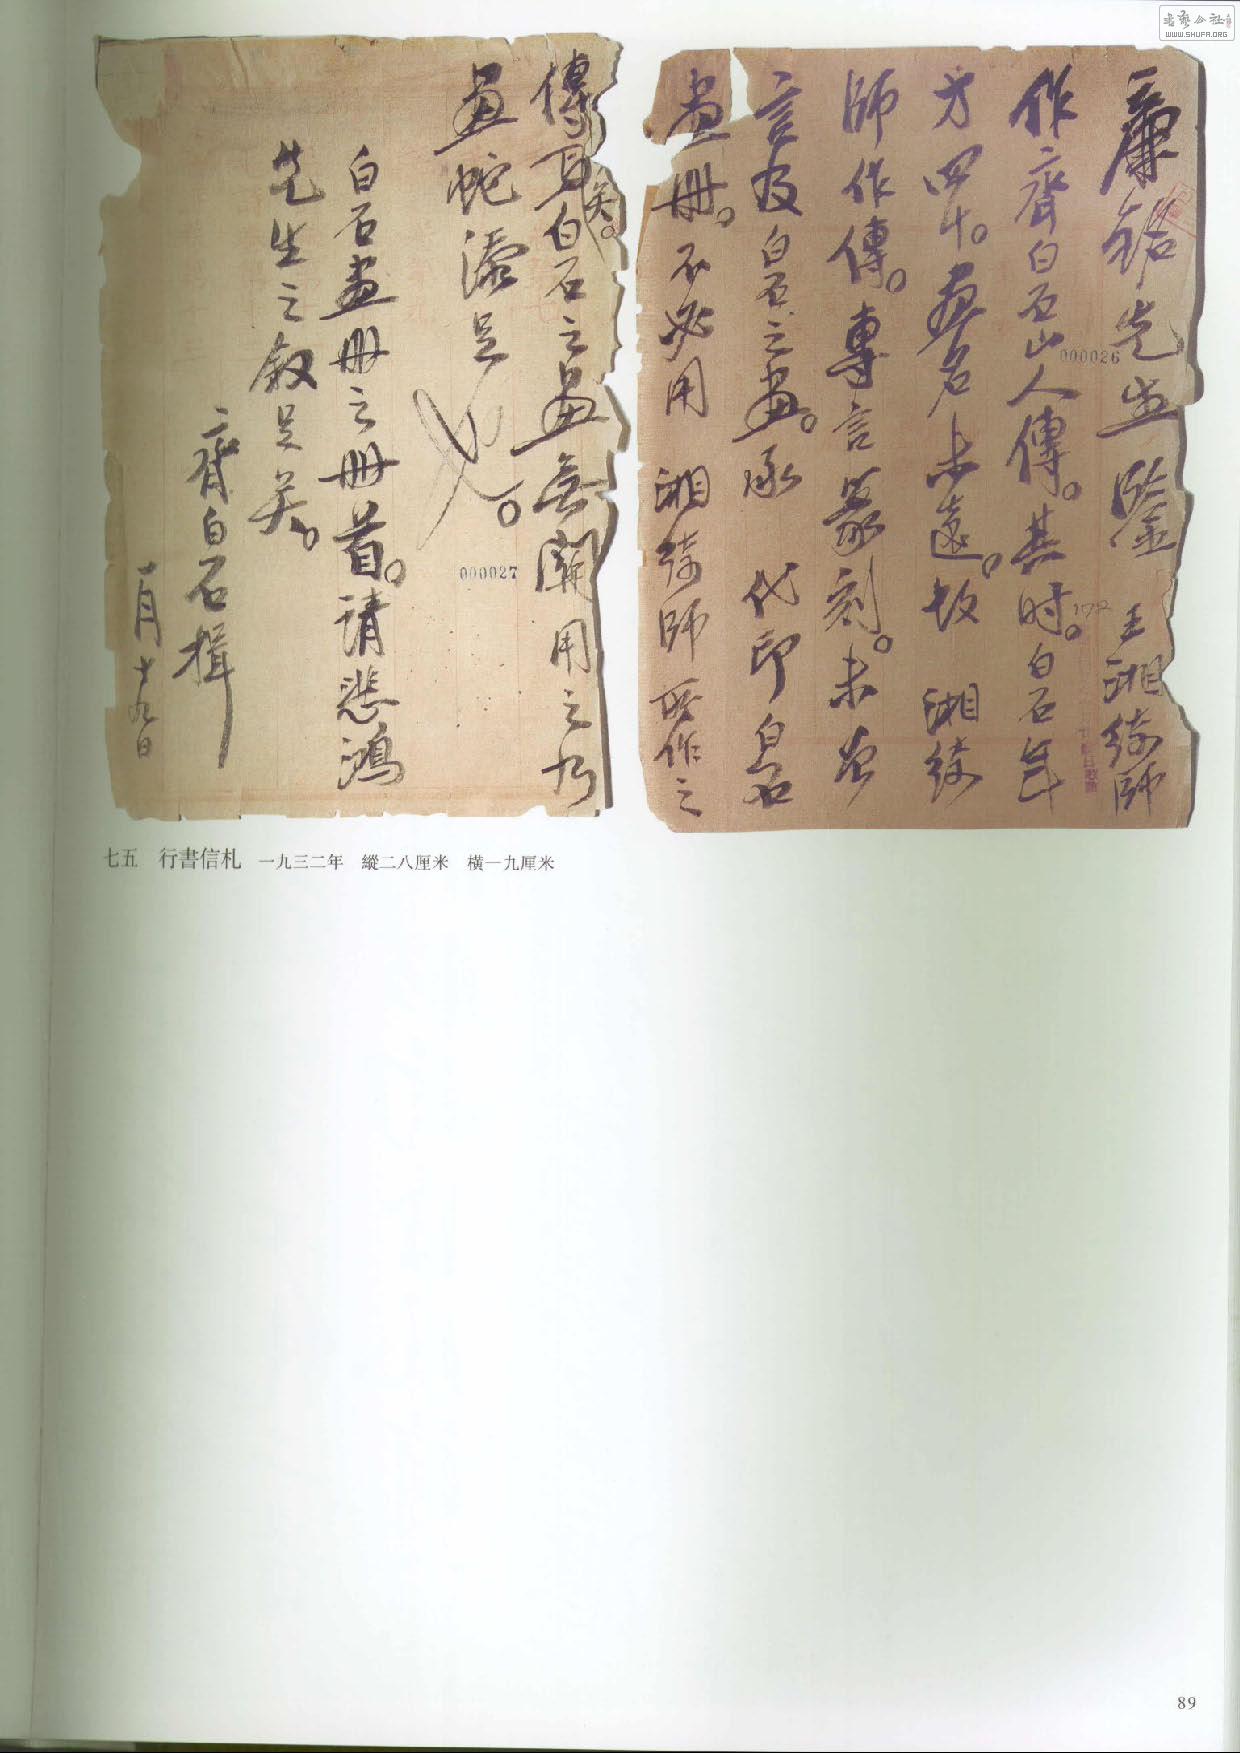 書藝公社
WWW.SHUFA.ORG
廉銘先生鑒 王湘綺師
作齊白石山人傳。其時。白石年
方四十。畫名未遠。故 湘綺
師作傳。專言篆刻。未曾
言及白石之畫。承 代印白石
畫冊。不必用 湘綺師所作之
000026
傳耳白石之畫無關用之乃
矣。
畫蛇添足也。
白石畫冊之冊首。請悲鴻
先生之敘足矣。
齊白石揖
一月十九日
000027
七五 行書信札 一九三二年 縱二八厘米 橫一九厘米
89